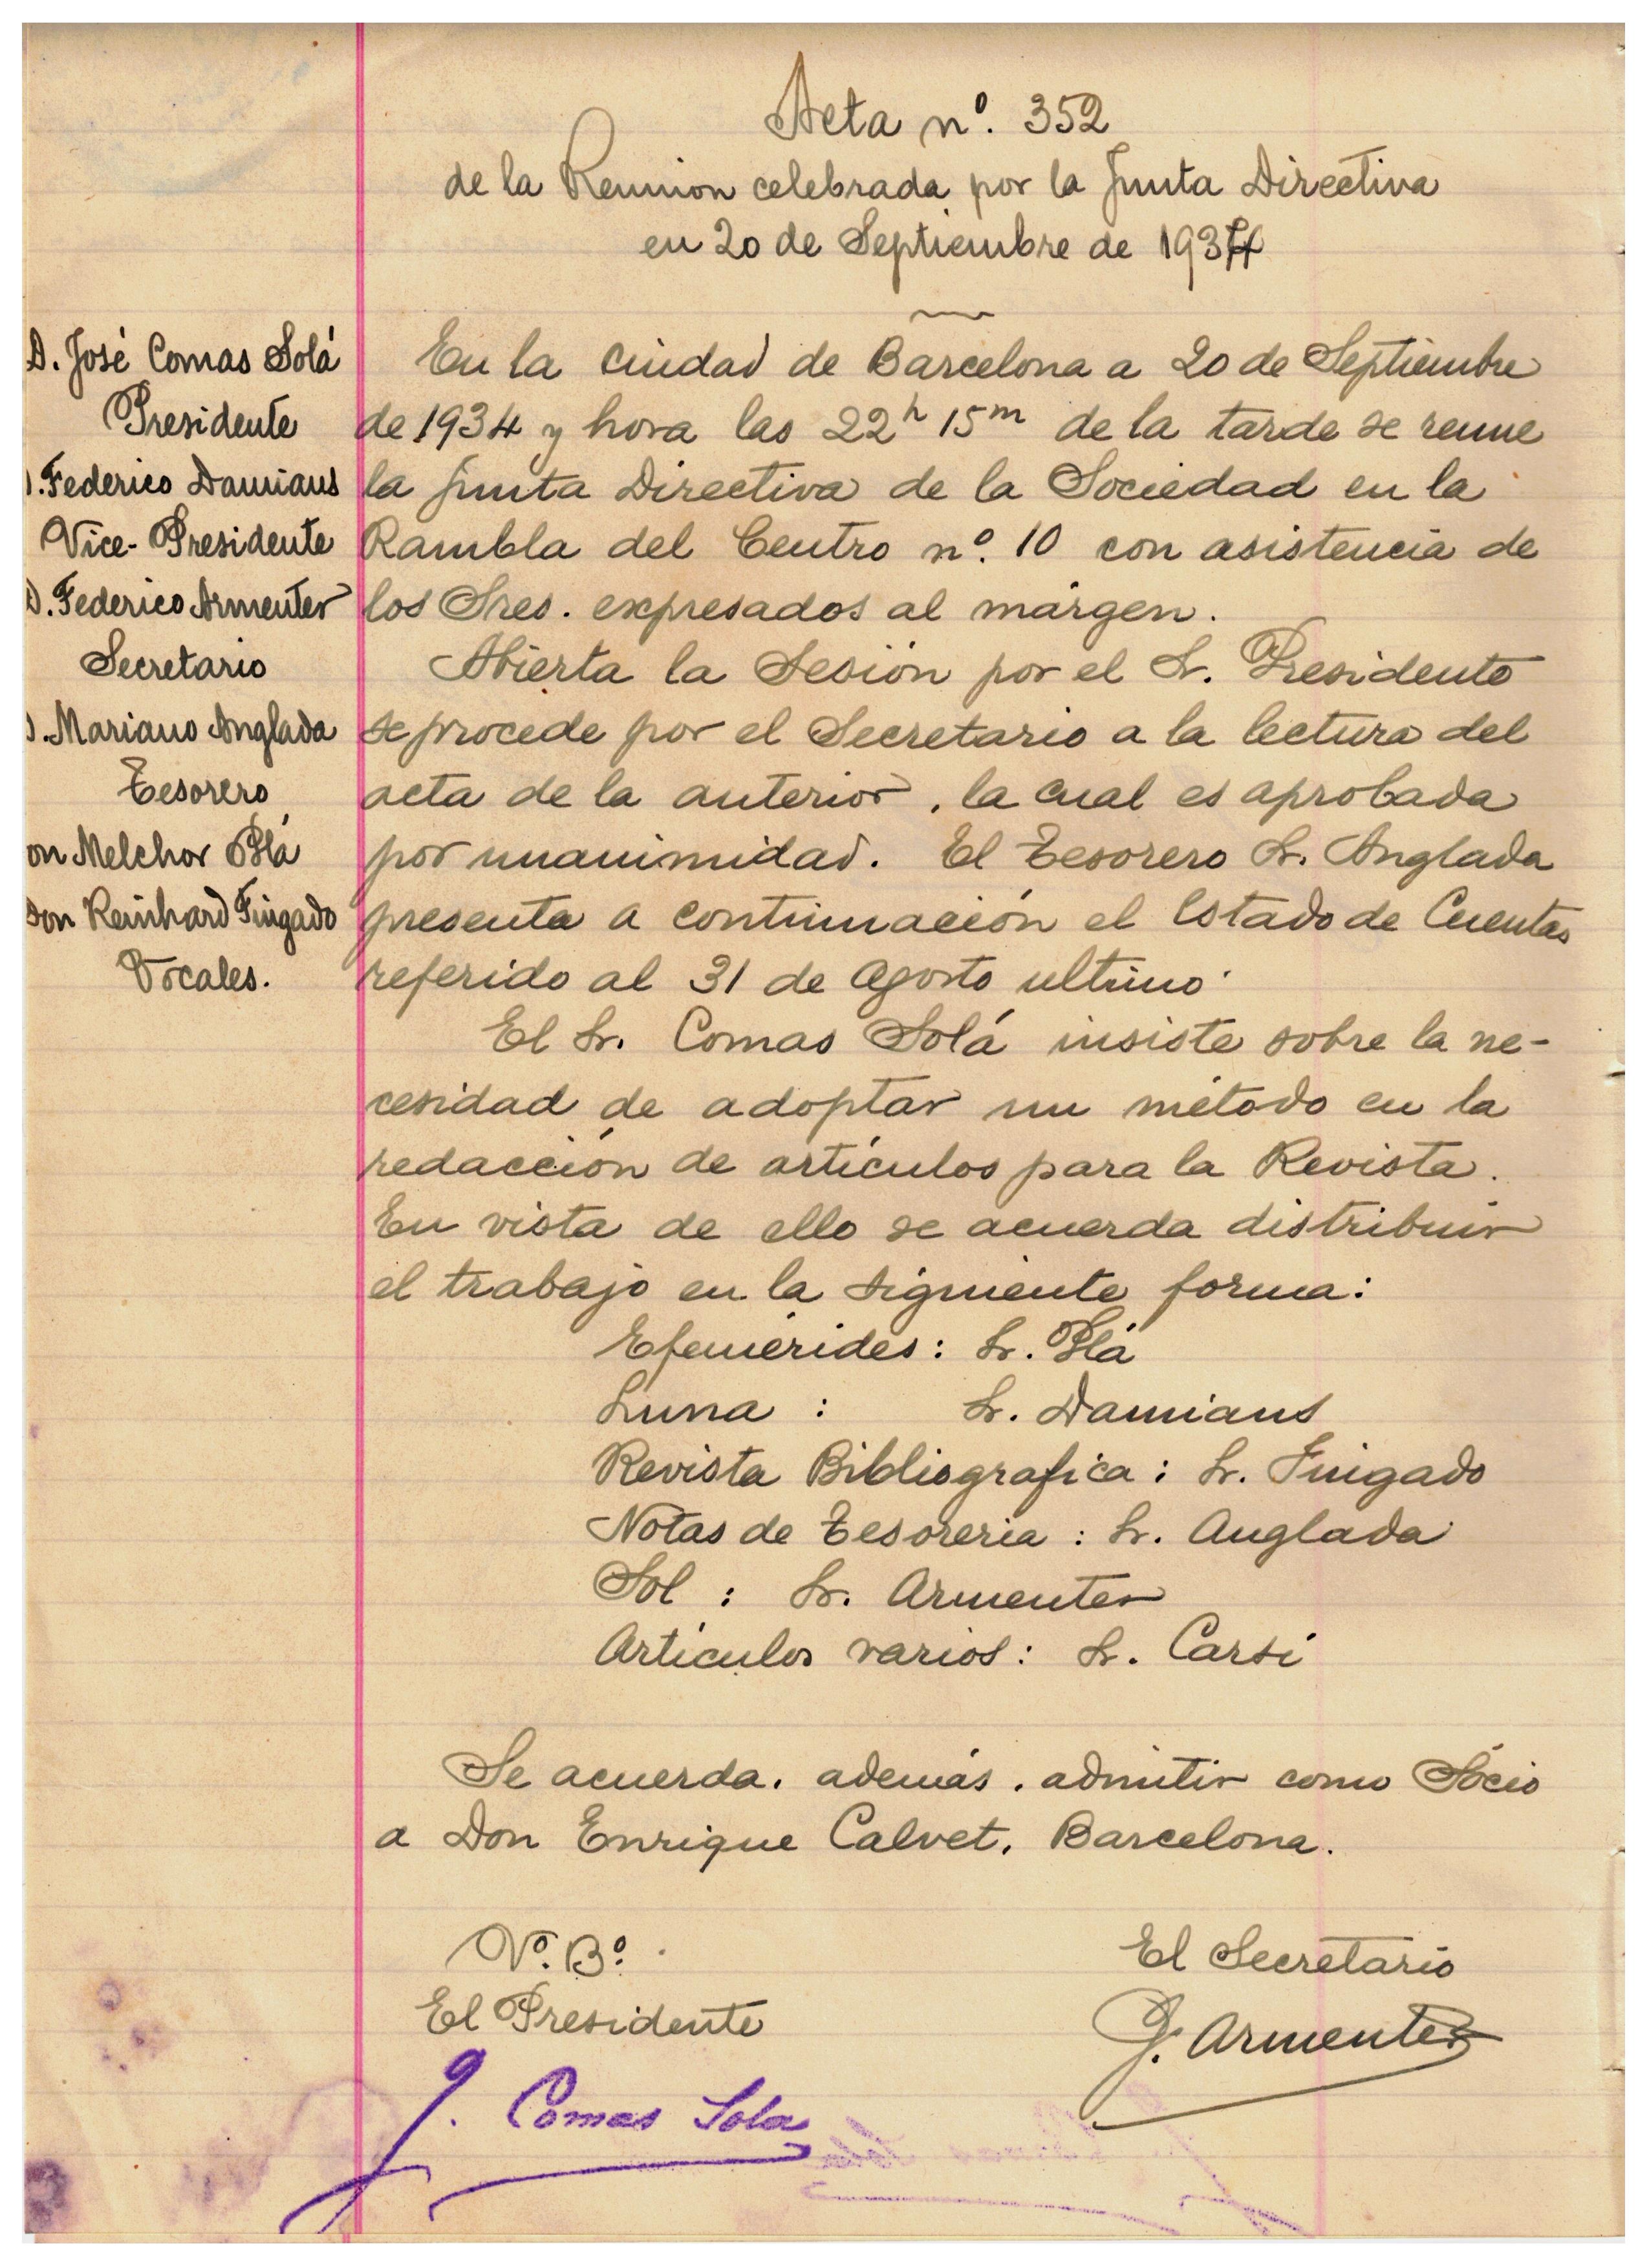 Acta nº. 352
de la Reunion celebrada por la Junta Directiva
en 20 de Septiembre de 1934
D. José Comas Solá
Presidente
D. Federico Damians
Vice-Presidente
D. Federico Armenter
Secretario
D. Mariano Anglada
Tesorero
on Melchor Plá
Don Reinhard Fingado
Vocales.
En la ciudad de Barcelona a 20 de Septiembre
de 1934 y hora las 22h 15m de la tarde se reune
la Junta Directiva de la Sociedad en la
Rambla del Centro nº. 10 con asistencia de
los Sres. expresados al márgen.
Abierta la Sesión por el Sr. Presidente
se procede por el Secretario a la lectura del
acta de la anterior, la cual es aprobada
por unanimidad. El Tesorero Sr. Anglada
presenta a continuación el Estado de Cuentas
referido al 31 de Agosto ultimo.
El Sr. Comas Solá insiste sobre la ne-
cesidad de adoptar un método en la
redacción de artículos para la Revista.
En vista de ello se acuerda distribuir
el trabajo en la siguiente forma:
Efemérides: Sr. Plá
Luna : Sr. Damians
Revista Bibliografica: Sr. Fingado
Notas de Tesoreria : Sr. Anglada
Sol : Sr. Armenter
Artículos varios: Sr. Carsí
Se acuerda, además, admitir como Sócio
a Don Enrique Calvet, Barcelona.
Vº. Bº.
El Presidente
J. Comas Sola
El Secretario
F. Armenter